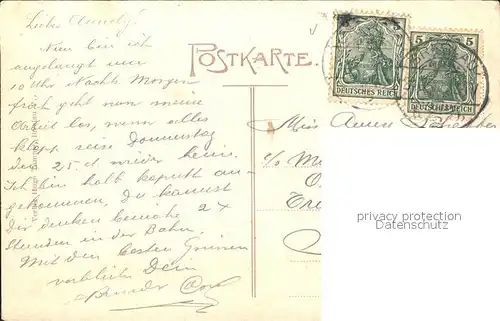 Liebe Annely!
Nun bin ich
angelangt um
10 Uhr Nachts Morgen
früh geht nun meine
Arbeit los, wenn alles
klappt reise Donnerstag
den 25.d wieder heim.
Ich bin halb kaputt an-
gekommen, Du kannst
Dir denken beinahe 24
Stunden in der Bahn.
Mit den besten Grüssen
verbleibe Dein
Bruder
POSTKARTE.
5 5
DEUTSCHES REICH
DEUTSCHES REICH
Miss
c/o
privacy protection
Datenschutz